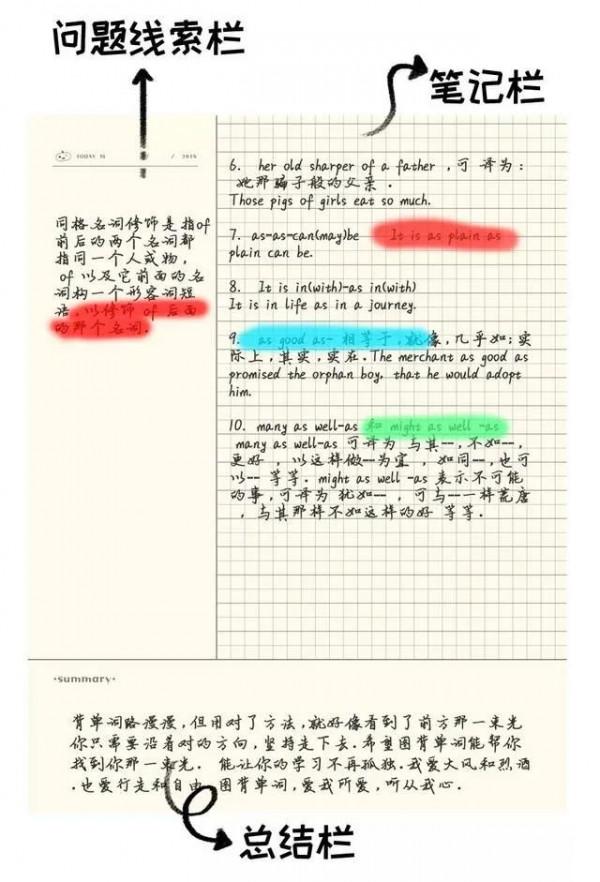 问题线索栏
笔记栏
TODAY IS
同格名词修饰是指of
前后的两个名词都
指同一个人或物，
of 以及它前面的名
词构一个形容词短
语，以修饰 of 后面
的那个名词.
6. her old sharper of a father ，可 译为：
她那骗子般的父亲.
Those pigs of girls eat so much.
7. as-as-can(may)be It is as plain as
plain can be.
8. It is in(with)-as in(with)
It is in life as in a journey.
9. as good as- 相等于，就像，几乎如；实
际上，其实，实在.The merchant as good as
promised the orphan boy, that he would adopt
him.
10. many as well-as 和 might as well -as
many as well-as 可译为 与其--，不如--，
更好 ，以这样做--为宜 ，如同--，也可
以-- 等等. might as well -as 表示不可能
的事，可译为 犹如-- ，可与--一样荒唐
，与其那样不如这样的好 等等.
·summary·
背单词路漫漫，但用对了方法，就好像看到了前方那一束光
你只需要沿着对的方向，坚持走下去.希望图背单词能帮你
找到你那一束光. 能让你的学习不再孤独.我爱大风和烈酒
.也爱行走和自由 图背单词，爱我所爱，听从我心.
总结栏